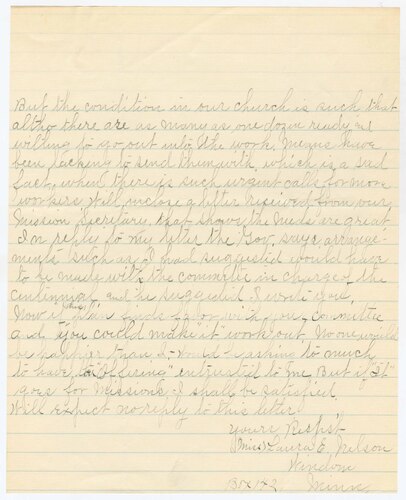 But the condition in our church is such that
altho there are as many as one dozen ready and
willing to go out into the work, means have
been lacking to send them with which is a sad
fact, when there is such urgent calls for more
workers. Will inclose a letter received from our
Mission Secretary, that shows the needs are great.
In reply to my letter the Gov. says arrange-
ments such as I had suggested would have
to be made with the committe in charge of the
Centennial, and he suggested I write you,
Now if plan finds favor with you, committee
and you could make "it" work out, No one would
be happier than I. Would asking to much
to have "Offering" entrusted to me, But if "it"
goes for Missions I shall be satisfied.
Will expect no reply to this letter.
Yours, Respt'
(Miss) Laura E. Nelson
Windom
Box 142 Minn.